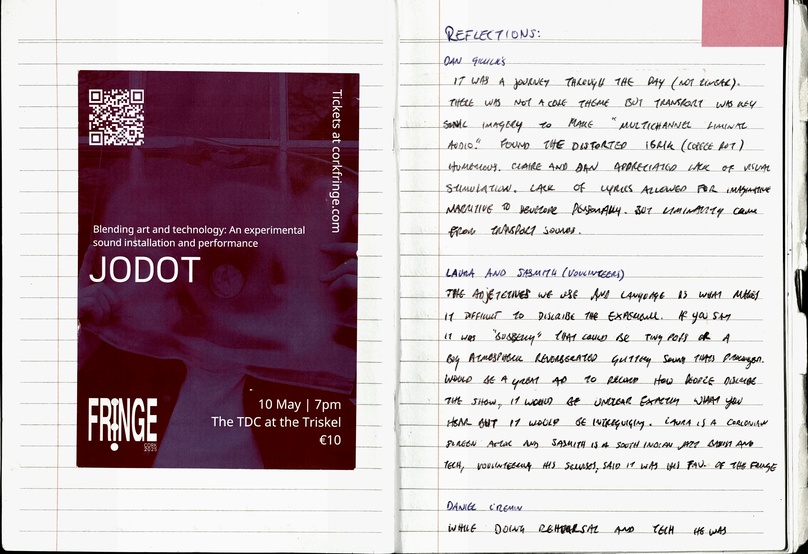 Tickets at corkfringe.com
Blending art and technology: An experimental
sound installation and performance
JODOT
FRINGE
CORK
2025
10 May | 7pm
The TDC at the Triskel
€10
REFLECTIONS:
DAN
IT WAS A JOURNEY THROUGH THE DAY (NOT LINEAR).
THERE WAS NOT A CORE THEME BUT TRANSPORT WAS KEY
SONIC IMAGERY TO MAKE "MULTICHANNEL LIMINAL
AUDIO." FOUND THE DISTORTED IBRIK (COFFEE POT)
HUMEROUS. CLAIRE AND DAN APPRECIATED LACK OF VISUAL
STIMULATION. LACK OF LYRICS ALLOWED FOR IMAGINATIVE
NARRATIVE TO DEVELOP PERSONALLY. BUT LIMINALITY CAME
FROM TRANSPORT SOUNDS.
LAURA AND SASMITH (VOULINTEERS)
THE ADJETECTIVES WE USE AND LANGUAGE IS WHAT MAKES
IT DIFFICULT TO DISCRIBE THE EXPERIENCE. IF YOU SAY
IT WAS "BUBBELY" THAT COULD BE TINY POPS OR A
BIG ATMOSPHERIC REVERBERATED GLITTERY SOUND THATS PROLONGED.
WOULD BE A GREAT AD TO RECORD HOW PEOPLE DISCRIBE
THE SHOW, IT WOULD BE UNCLEAR EXACTLY WHAT YOU
HEAR BUT IT WOULD BE INTREGUIGING. LAURA IS A CORLONIAN
SCREEN ACTOR AND SASMITH IS A SOUTH INDIAN JAZZ BASIST AND
TECH, VOULINTEERING HIS SERVICES, SAID IT WAS HIS FAV. OF THE FRINGE
DANIEL CREMIN
WHILE DOING REHEARSAL AND TECH HE WAS